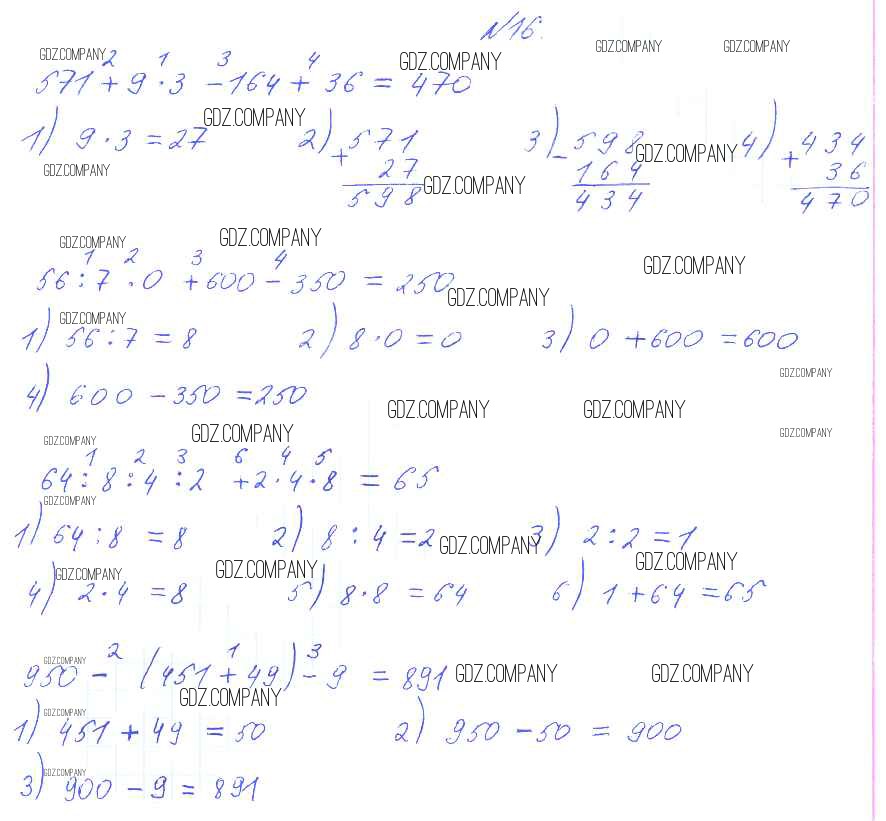 №16.
GDZ.COMPANY GDZ.COMPANY GDZ.COMPANY GDZ.COMPANY
2 1 3 4
571 + 9 · 3 - 164 + 36 = 470
GDZ.COMPANY
1) 9 · 3 = 27 2) + 571 3) - 598 4) + 434
27 164 36
598 434 470
GDZ.COMPANY GDZ.COMPANY GDZ.COMPANY
GDZ.COMPANY GDZ.COMPANY GDZ.COMPANY
1 2 3 4
56 : 7 · 0 + 600 - 350 = 250
GDZ.COMPANY GDZ.COMPANY
1) 56 : 7 = 8 2) 8 · 0 = 0 3) 0 + 600 = 600
GDZ.COMPANY
4) 600 - 350 = 250
GDZ.COMPANY GDZ.COMPANY
GDZ.COMPANY GDZ.COMPANY GDZ.COMPANY
1 2 3 6 4 5
64 : 8 : 4 : 2 + 2 · 4 · 8 = 65
GDZ.COMPANY
1) 64 : 8 = 8 2) 8 : 4 = 2 3) 2 : 2 = 1
GDZ.COMPANY GDZ.COMPANY
GDZ.COMPANY GDZ.COMPANY
4) 2 · 4 = 8 5) 8 · 8 = 64 6) 1 + 64 = 65
2 1 3
950 - (451 + 49) - 9 = 891
GDZ.COMPANY GDZ.COMPANY GDZ.COMPANY
GDZ.COMPANY GDZ.COMPANY
1) 451 + 49 = 50 2) 950 - 50 = 900
GDZ.COMPANY
3) 900 - 9 = 891